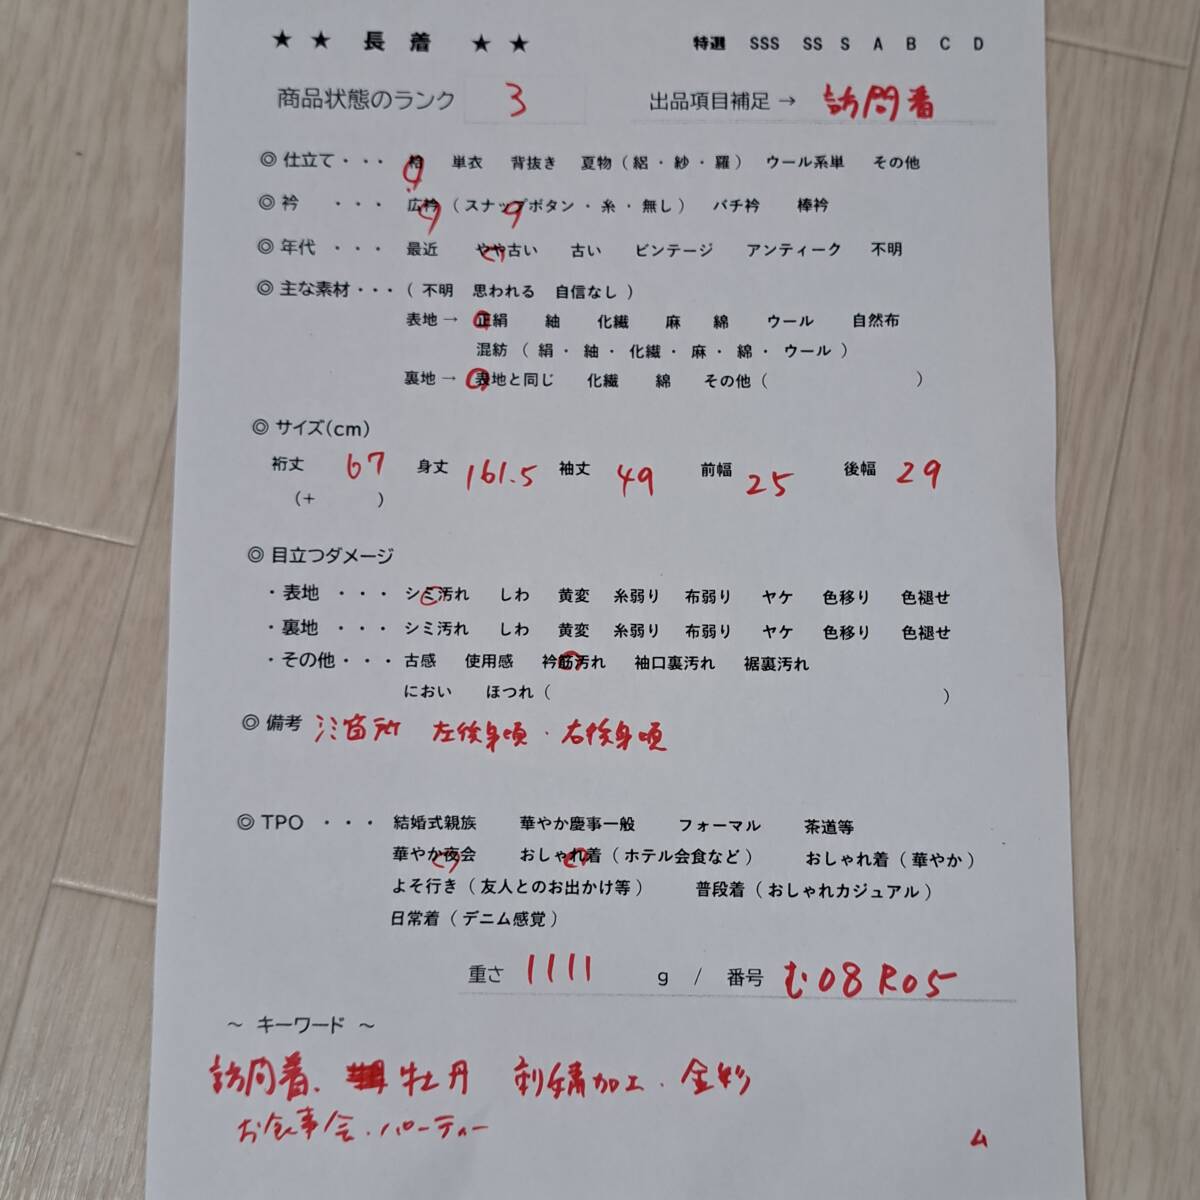 ★ ★ 長 着 ★ ★ 特選 SSS SS S A B C D
商品状態のランク 3 出品項目補足 → 訪問着
◎ 仕立て・・・ 袷 単衣 背抜き 夏物（絽・紗・羅） ウール系単 その他
◎ 衿 ・・・ 広衿（スナップボタン・糸・無し） バチ衿 棒衿
◎ 年代 ・・・ 最近 やや古い 古い ビンテージ アンティーク 不明
◎ 主な素材・・・（不明 思われる 自信なし）
表地→ 正絹 紬 化繊 麻 綿 ウール 自然布
混紡（絹・紬・化繊・麻・綿・ウール）
裏地→ 表地と同じ 化繊 綿 その他（ ）
◎ サイズ(cm)
裄丈 67 身丈 161.5 袖丈 49 前幅 25 後幅 29
（+ ）
◎ 目立つダメージ
・表地 ・・・ シミ汚れ しわ 黄変 糸弱り 布弱り ヤケ 色移り 色褪せ
・裏地 ・・・ シミ汚れ しわ 黄変 糸弱り 布弱り ヤケ 色移り 色褪せ
・その他・・・ 古感 使用感 衿筋汚れ 袖口裏汚れ 裾裏汚れ
におい ほつれ（ ）
◎ 備考 シミ箇所 左後身頃・右後身頃
◎ TPO ・・・ 結婚式親族 華やか慶事一般 フォーマル 茶道等
華やか夜会 おしゃれ着（ホテル会食など） おしゃれ着（華やか）
よそ行き（友人とのお出かけ等） 普段着（おしゃれカジュアル）
日常着（デニム感覚）
重さ 1111 g / 番号 む08R05
～ キーワード ～
訪問着、牡丹 刺繍加工・金彩
お食事会・パーティー
ム